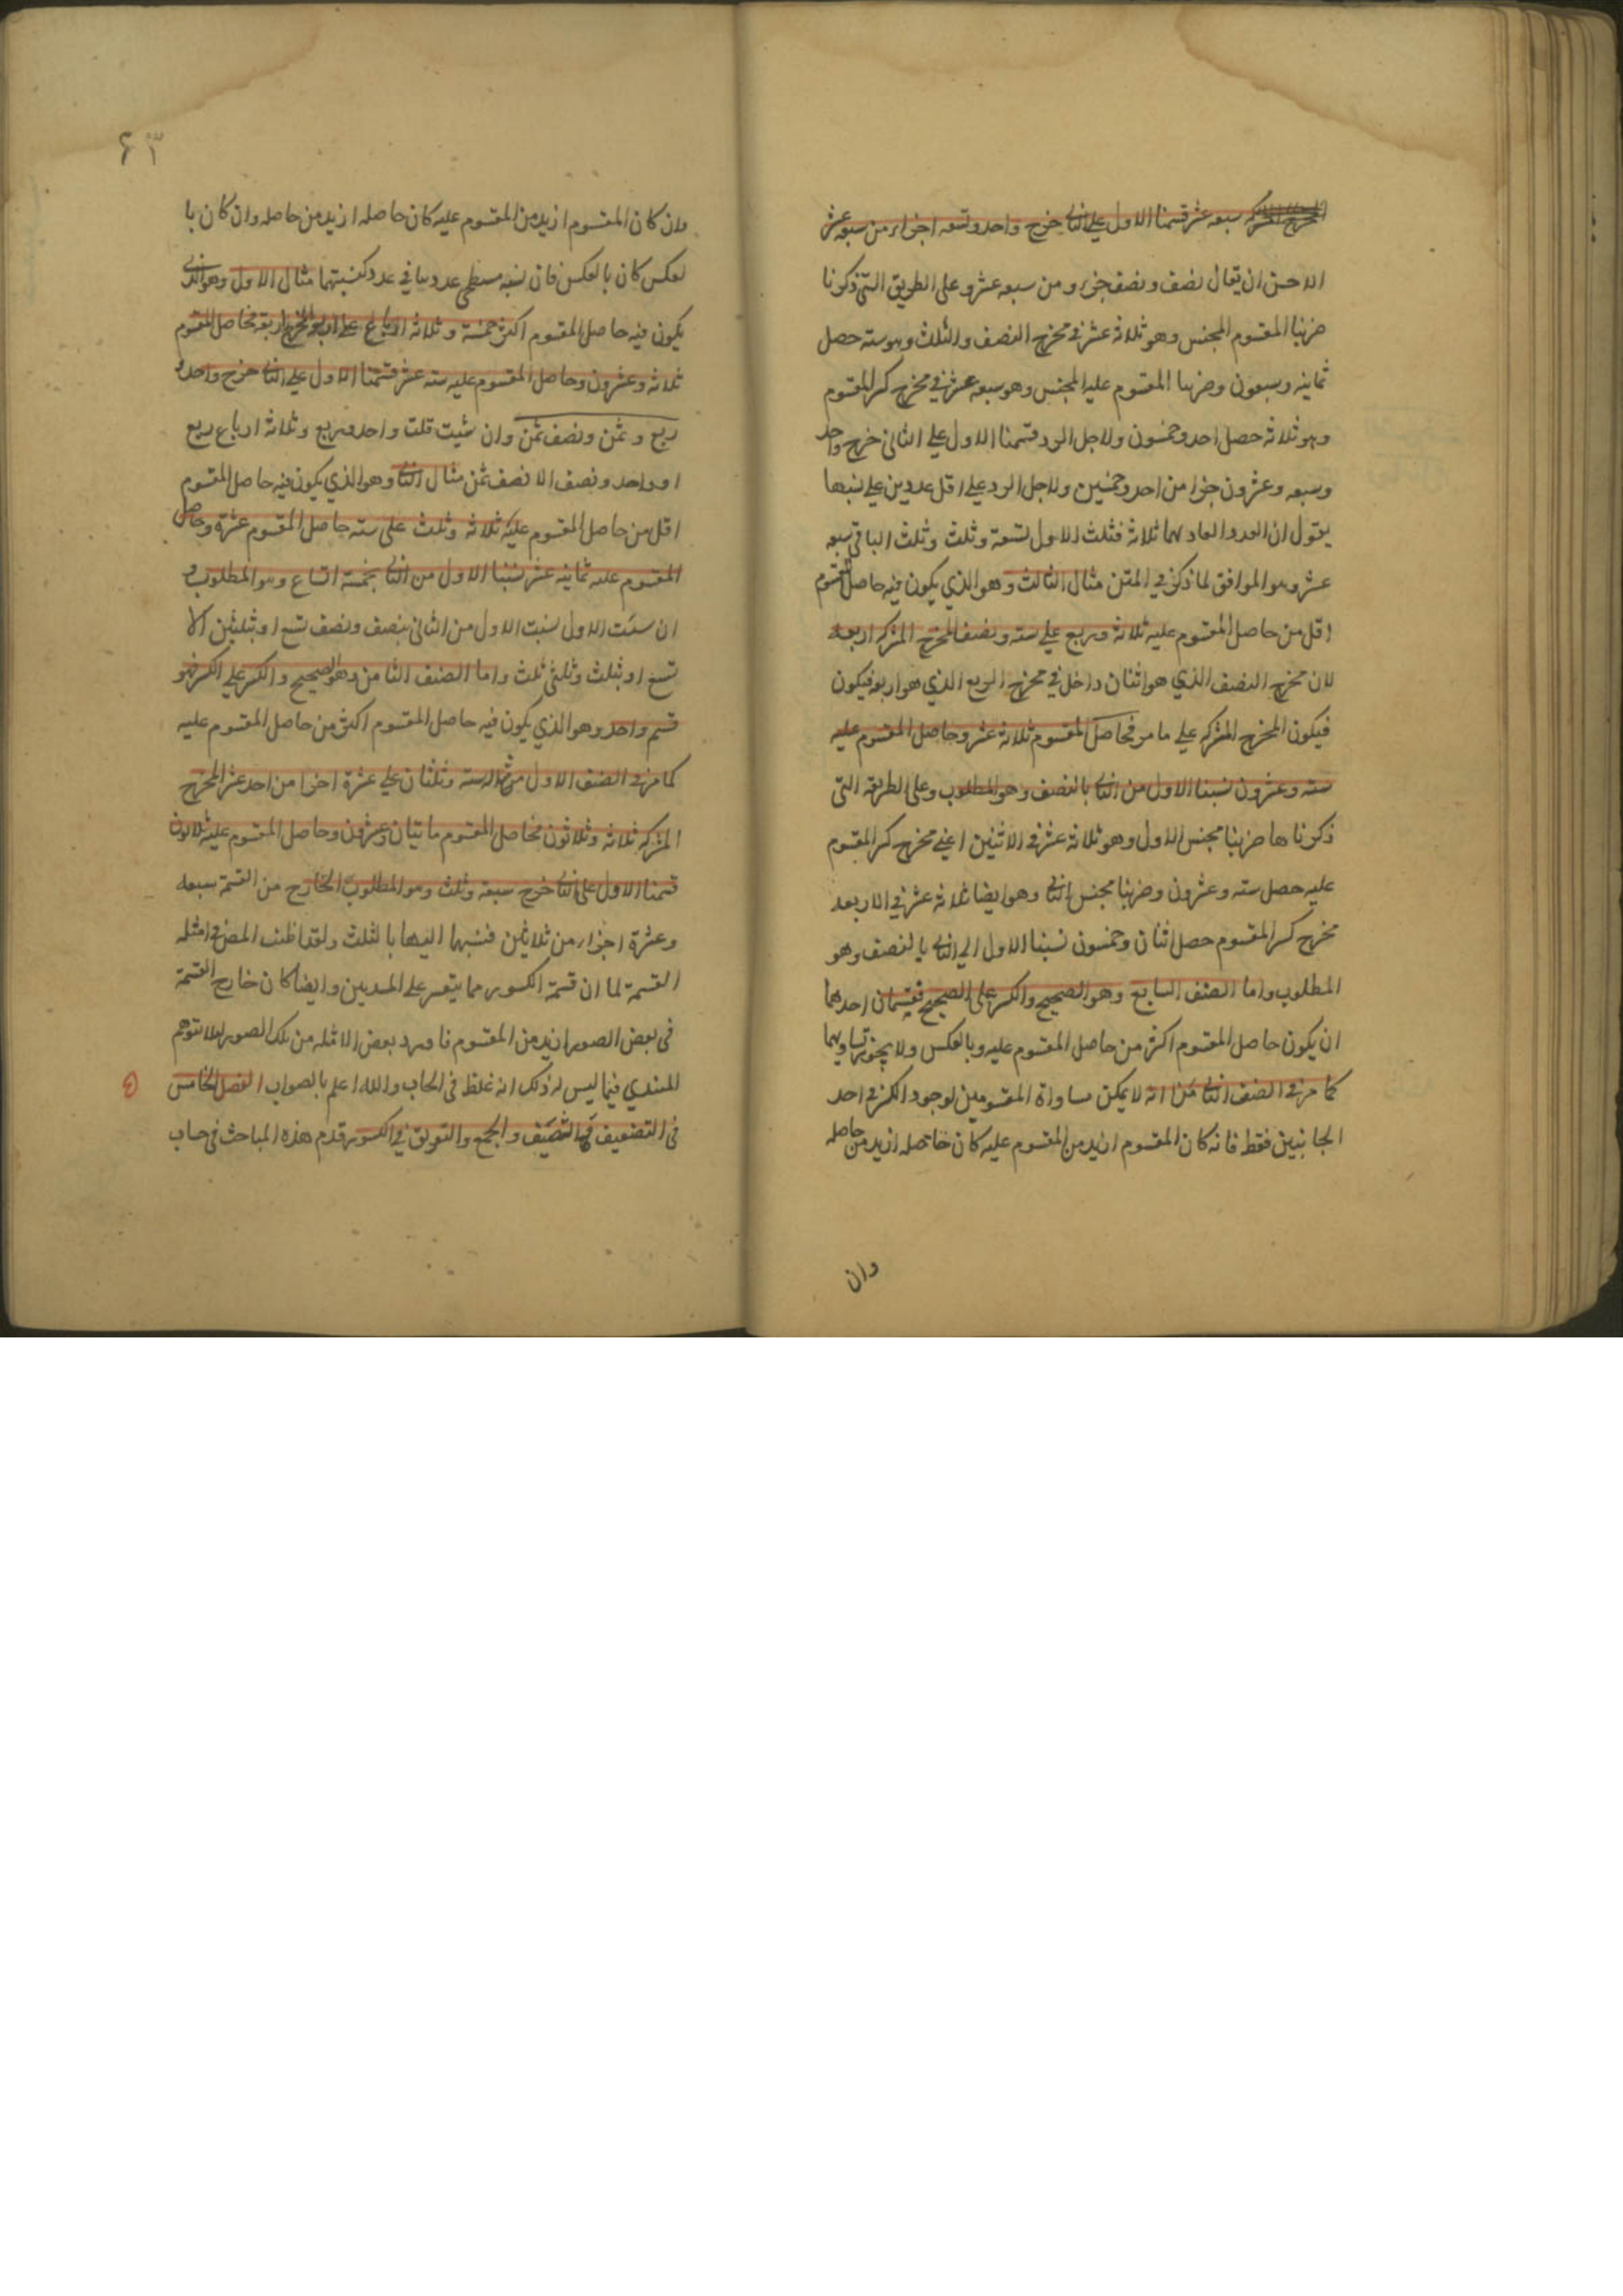 المخرج المشترك سبعه عشر قسمنا الاول علي الثاني خرج واحد وتسعه اجزاء من سبعه عشر
الاحسن ان يقال نصف ونصف جزء ومن سبعه عشر وعلى الطريق التي ذكرنا
ضربنا المقسوم المجنس وهو ثلاثة عشر في مخرج النصف والثلث وهو سته حصل
ثمانيه وسبعون وضربنا المقسوم عليه المجنس وهو سبعه عشر في مخرج كسر المقسوم
وهو ثلاثه حصل احد وخمسون ولاجل الرد قسمنا الاول على الثاني خرج واحد
وسبعه وعشرون جزءا من احد وخمسين ولاجل الرد على اقل عددين علي نسبها
يقول ان العدد العاد لهما ثلاثة فثلث الاول تسعة وثلث وثلث الباقي سبعه
عشر وهو الموافق لما ذكر في المتن مثال الثالث وهو الذي يكون فيه حاصل المقسوم
اقل من حاصل المقسوم عليه ثلاثة وربع علي سته ونصف المخرج المشترك اربعه
لان مخرج النصف الذي هو اثنان داخل في مخرج الربع الذي هو اربعه فيكون
فيكون المخرج المشترك علي ما مر فحاصل المقسوم ثلاثة عشر وحاصل المقسوم عليه
سته وعشرون نسبنا الاول من الثاني بالنصف وهو المطلوب وعلى الطريقه التي
ذكرناها ضربنا مجنس الاول وهو ثلاثة عشر في الاثنين اعني مخرج كسر المقسوم
عليه حصل سته وعشرون وضربنا مجنس الثاني وهو ايضا ثلاثة عشر في الاربعه
مخرج كسر المقسوم حصل اثنان وخمسون نسبنا الاول الي الثاني بالنصف وهو
المطلوب واما الصنف السابع وهو الصحيح والكسر على الصحيح فقسمان احدهما
ان يكون حاصل المقسوم اكثر من حاصل المقسوم عليه وبالعكس ولا يجوز تساويهما
كما مر في الصنف الثاني من انه لا يمكن مساواة المقسومين لوجود الكسر في احد
الجانبين فقط فانه كان المقسوم ازيد من المقسوم عليه كان حاصله ازيد من حاصله
وان
٦٣
وان كان المقسوم ازيد من المقسوم عليه كان حاصله ازيد من حاصله وان كان با
لعكس كان بالعكس فان نسبه مسطحي عددين في عدد كنسبتهما مثال الاول وهو الذي
يكون فيه حاصل المقسوم اكثر خمسة وثلاثة ارباع علي اربعه المخرج اربعة فحاصل المقسوم
ثلاثه وعشرون وحاصل المقسوم عليه سته عشر قسمنا الاول علي الثاني خرج واحد و
ربع وثمن ونصف ثمن وان شئت قلت واحد وربع وثلاثة ارباع ربع
او واحد ونصف الا نصف ثمن مثال الثاني وهو الذي يكون فيه حاصل المقسوم
اقل من حاصل المقسوم عليه ثلاثه وثلث على سته حاصل المقسوم عشرة وحاصل
المقسوم عليه ثمانيه عشر نسبنا الاول من الثاني بخمسة اتساع وهو المطلوب و
ان شئت الاول نسبت الاول من الثاني بنصف ونصف تسع او بثلثين الا
تسع او بثلث وثلثي ثلث واما الصنف الثامن وهو الصحيح والكسر على الكسر فهو
قسم واحد وهو الذي يكون فيه حاصل المقسوم اكثر من حاصل المقسوم عليه
كما مر في الصنف الاول مثاله سته وثلثان علي عشرة اجزا من احد عشر المخرج
المشترك ثلاثة وثلاثون فحاصل المقسوم مايتان وعشرون وحاصل المقسوم عليه ثلاثون
قسمنا الاول على الثاني خرج سبعة وثلث وهو المطلوب الخارج من القسمة سبعه
وعشرة اجزاء من ثلاثين فنسبها اليها بالثلث ولقد اطنب المص في امثله
القسمة لما ان قسمة الكسور مما يتعسر على المبتدين وايضا كان خارج القسمة
في بعض الصور ازيد من المقسوم فاورد بعض الامثله من تلك الصور لئلا يتوهم
المبتدي فيما ليس له ذلك انه غلط في الحساب والله اعلم بالصواب الفصل الخامس
في التضعيف والتنصيف والجمع والتفريق في الكسور قدم هذه المباحث في حساب